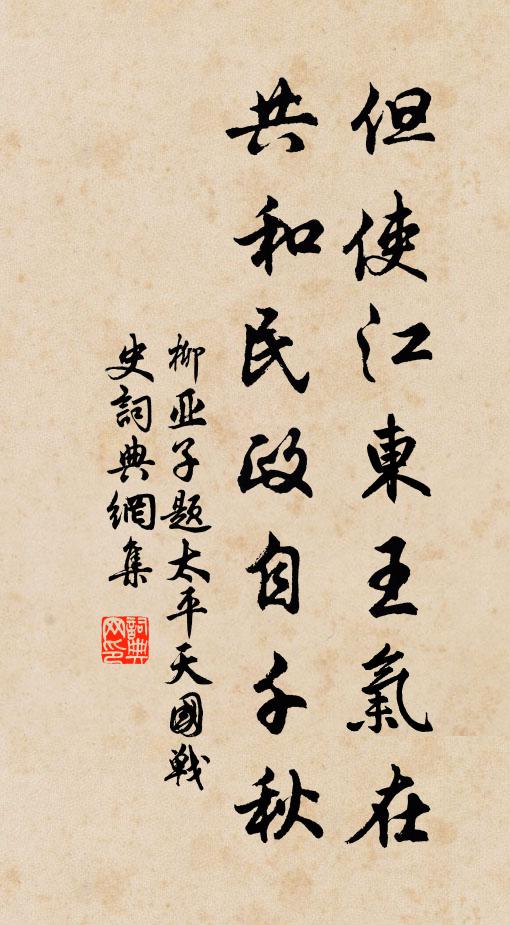 但使江東王氣在
共和民政自千秋
柳亚子题太平天國戰
史詞典網集
詞典网印